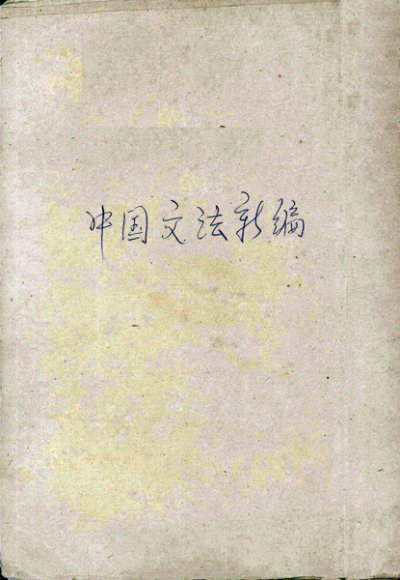 中国文法新编